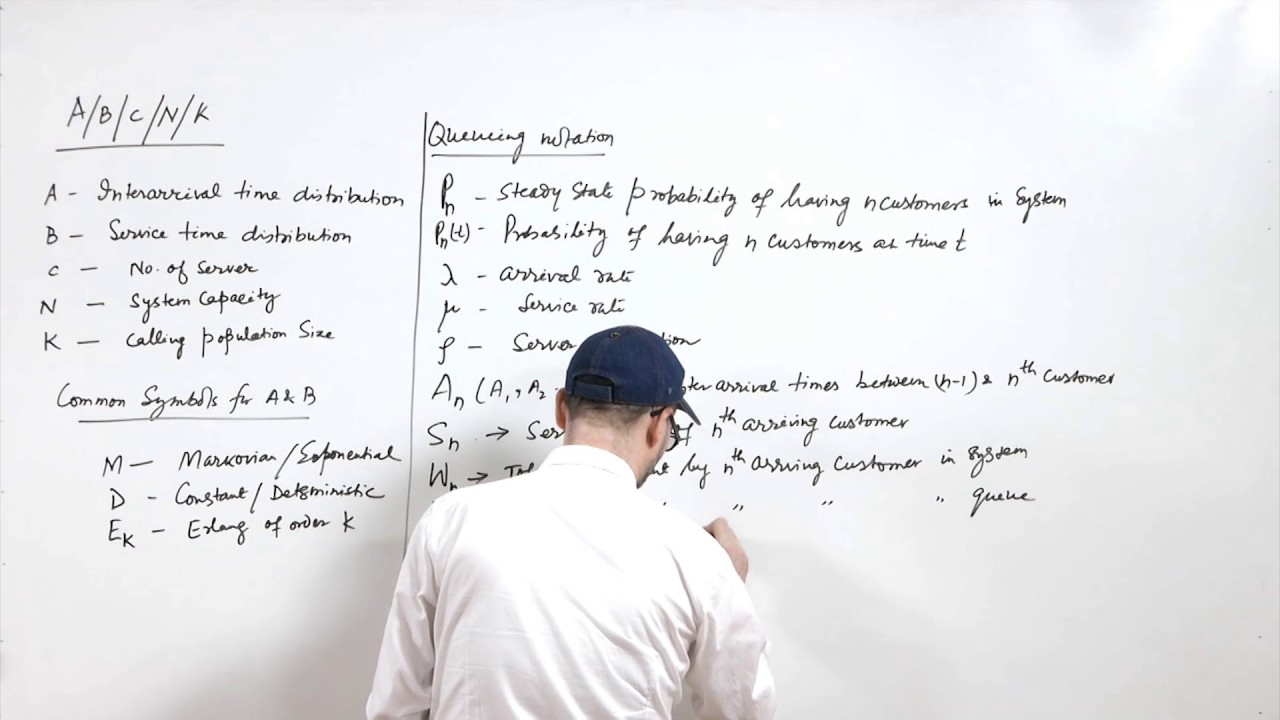 A/B/C/N/K
A - Interarrival time distribution
B - Service time distribution
C - No. of Server
N - System Capacity
K - Calling population Size
Common Symbols for A & B
M - Markovian/Exponential
D - Constant/Deterministic
EK - Erlang of order k
Queueing notation
Pn - Steady State probability of having n customers in System
Pn(t) - Probability of having n customers at time t
λ - arrival rate
μ - Service rate
ρ - Server
An (A1, A2 arrival times between (n-1) & nth Customer
Sn → nth arriving customer
Wn → by nth Arriving Customer in System
" " " queue